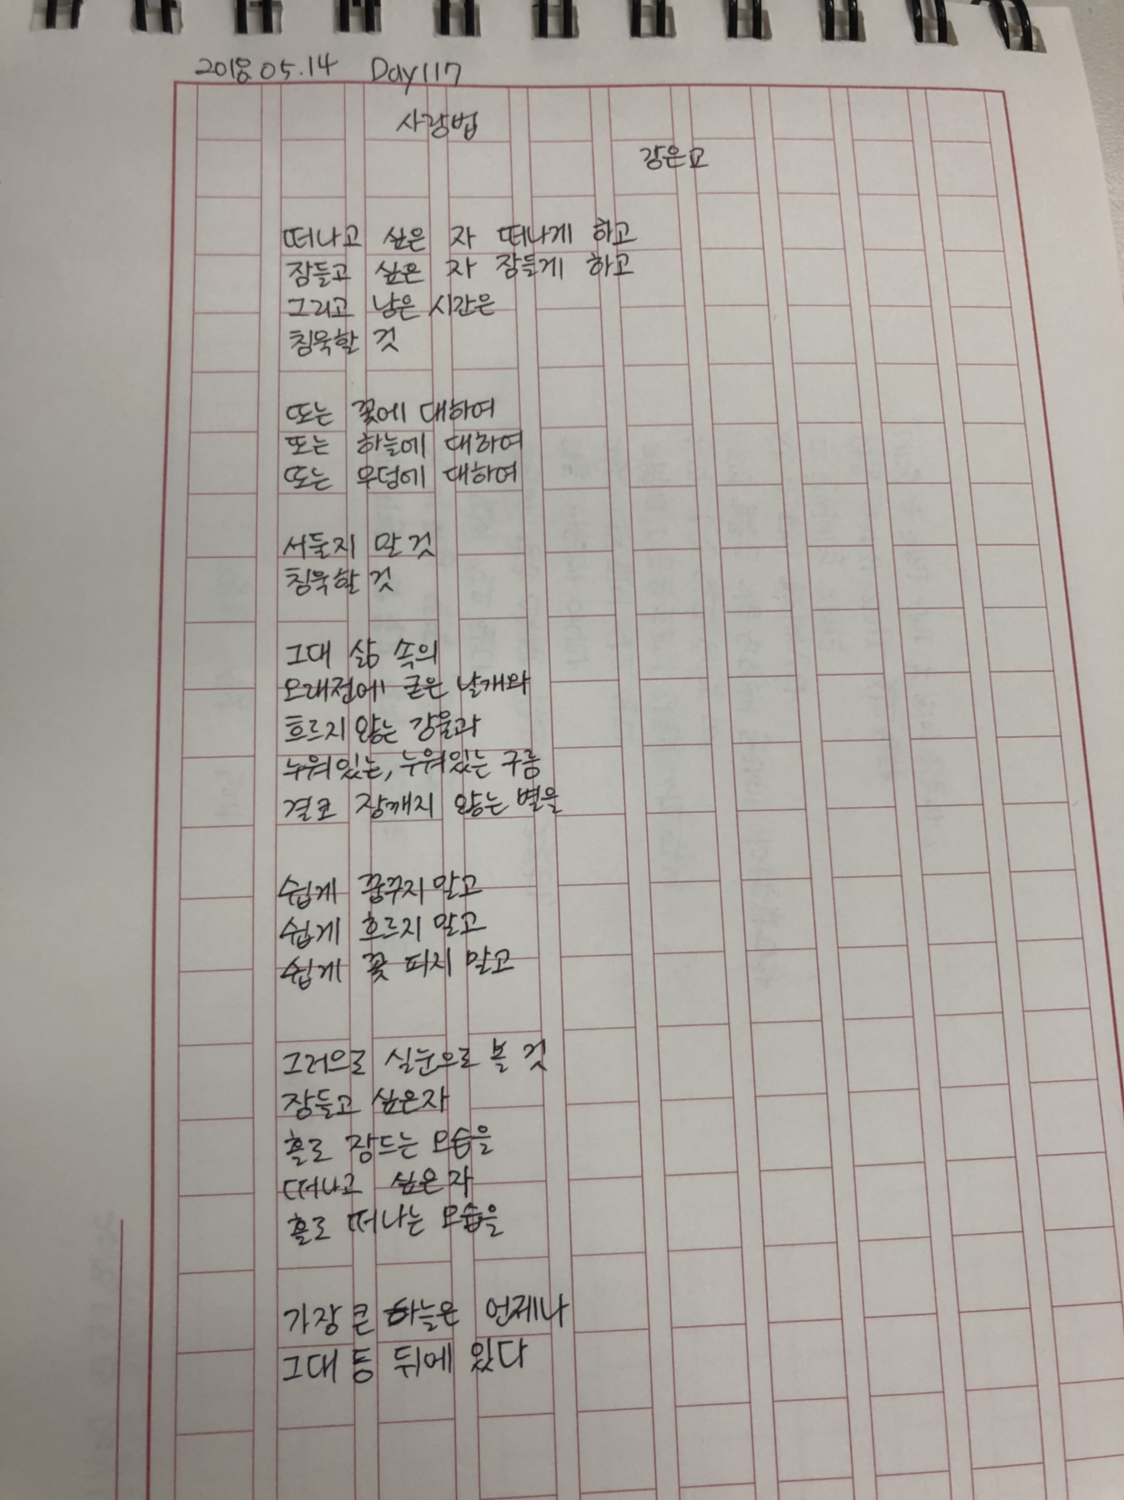 2018.05.14 Day117
사랑법
강은교
떠나고 싶은 자 떠나게 하고
잠들고 싶은 자 잠들게 하고
그리고 남은 시간은
침묵할 것
또는 꽃에 대하여
또는 하늘에 대하여
또는 무덤에 대하여
서둘지 말 것
침묵할 것
그대 삶 속의
오래전에 굳은 날개와
흐르지 않는 강물과
누워있는, 누워있는 구름
결코 잠깨지 않는 별을
쉽게 꿈꾸지 말고
쉽게 흐르지 말고
쉽게 꽃 피지 말고
그러므로 실눈으로 볼 것
잠들고 싶은자
홀로 잠드는 모습을
떠나고 싶은자
홀로 떠나는 모습을
가장 큰 하늘은 언제나
그대 등 뒤에 있다